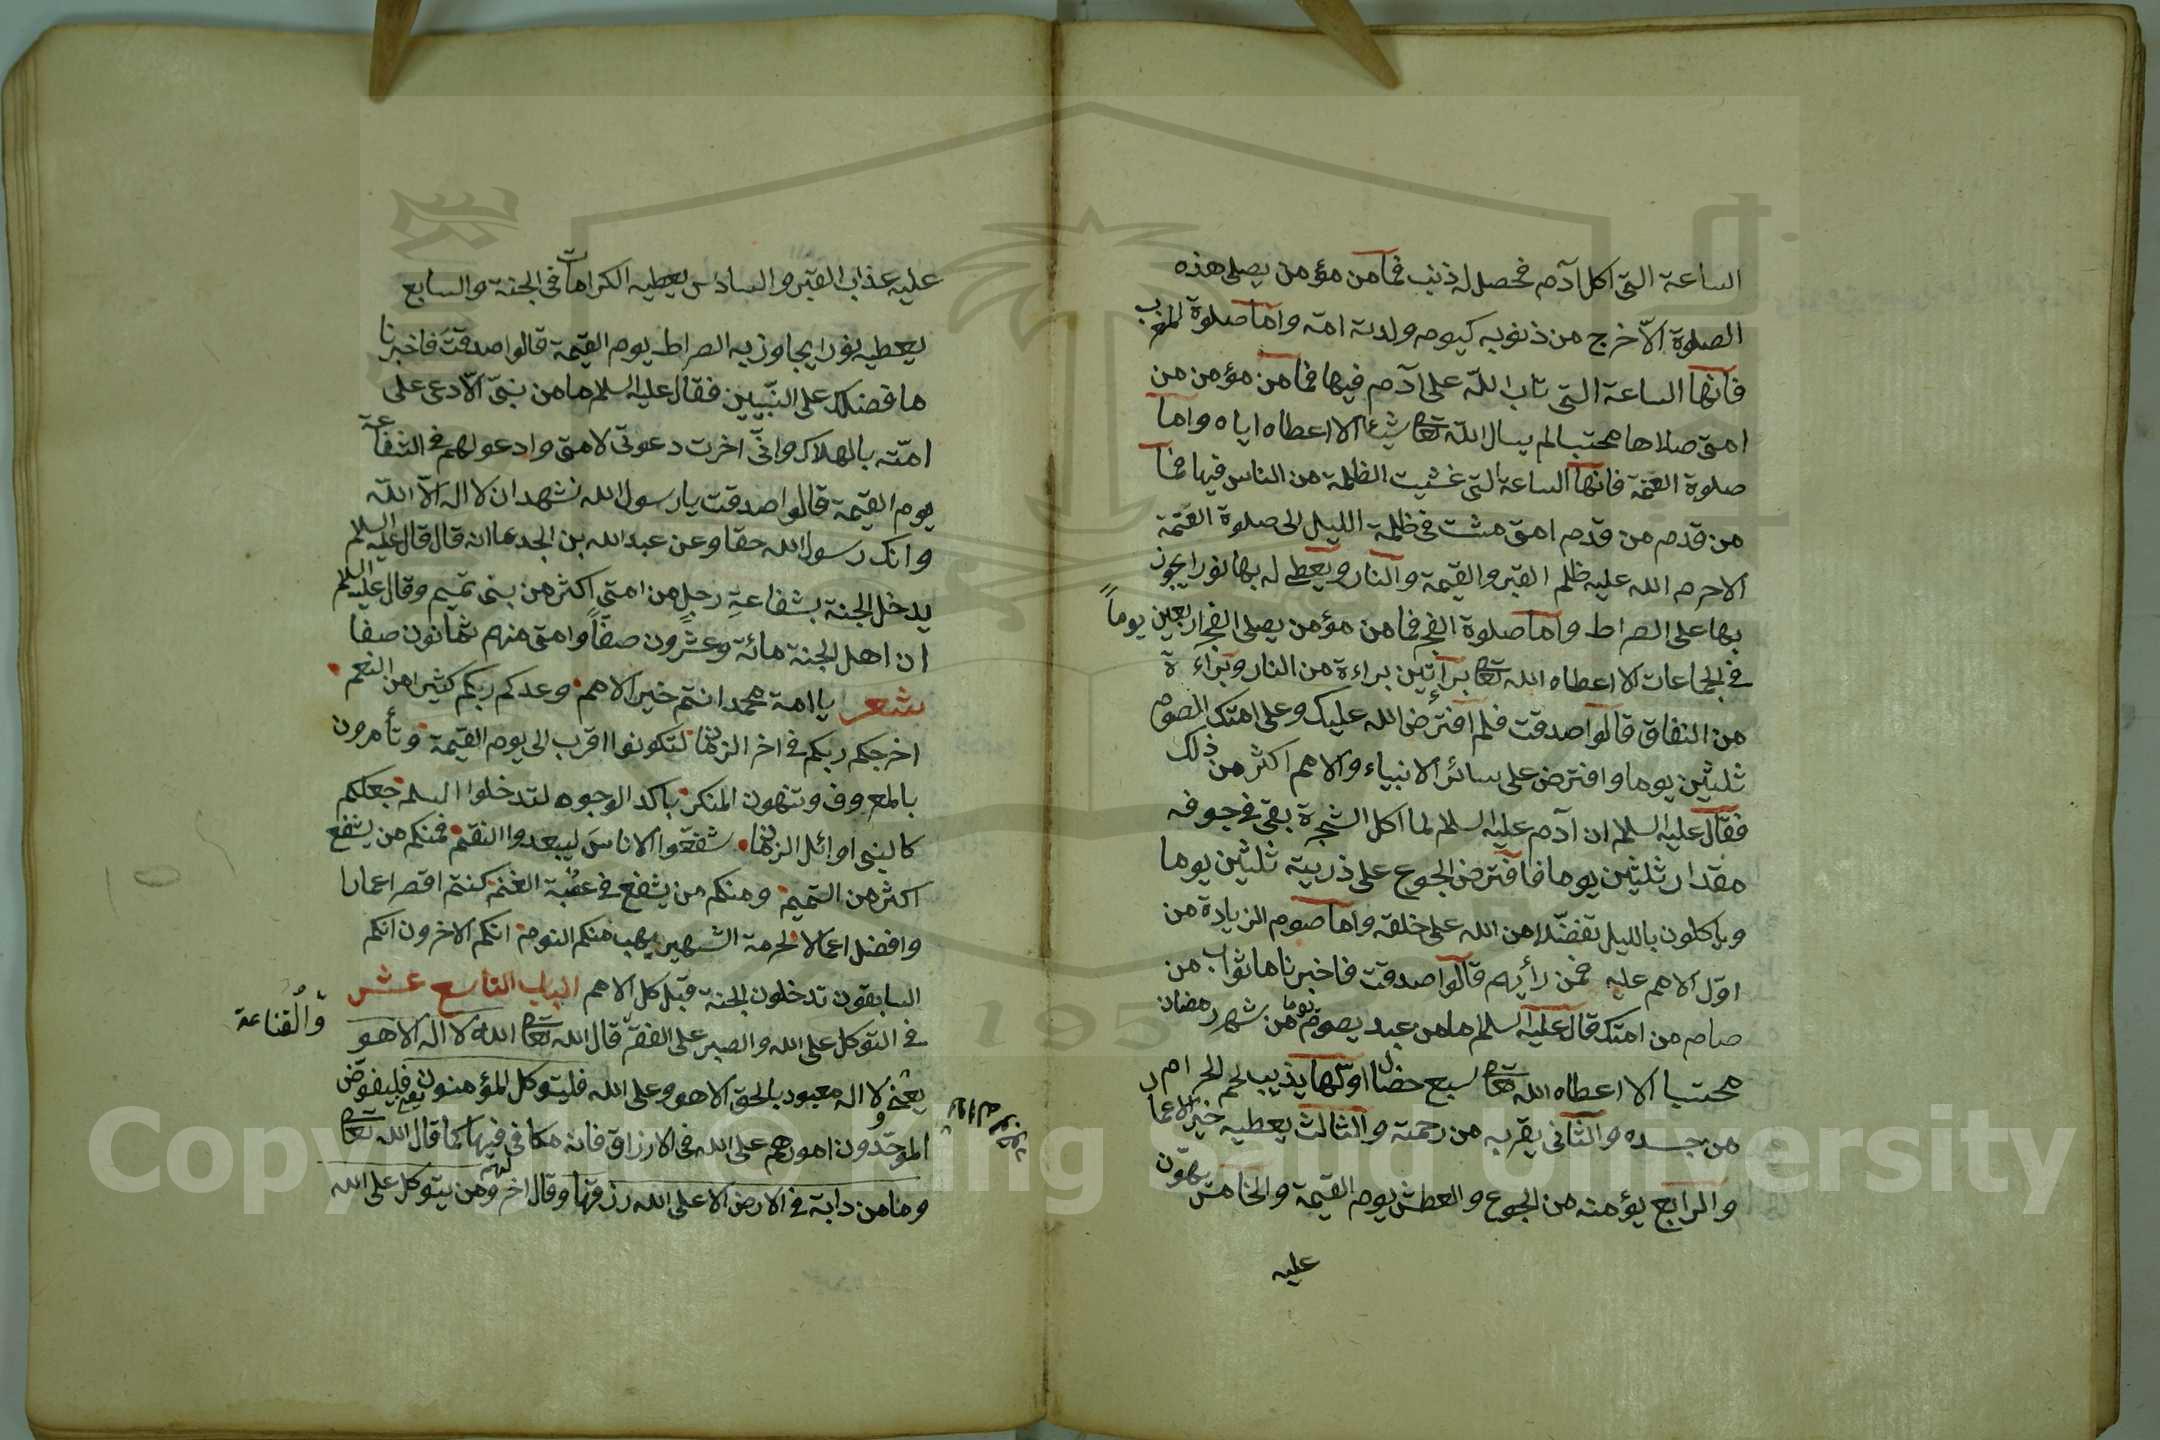 الساعة التى اكل آدم فحصل له ذنب فما من مؤمن يصلى هذه
الصلوة الّا خرج من ذنوبه كيوم ولدته امّه واما صلوة المغرب
فانها الساعة التى تاب اللّه على آدم فيها فما من مؤمن من
امتى صلاها محتسبا لم يسال اللّه تعالى شيئا الا اعطاه اياه واما
صلوة العتمة فانها الساعة التى غشيت الظلمة من الناس فيها فما
من قدم من قدم امتى مشت فى ظلمة الليل الى صلوة العتمة
الا حرم الله عليه ظلم القبر والقيمة والنار ويعطى له بها نورا يجوز
بها على الصراط واما صلوة الفجر فما من مؤمن يصلى الفجر اربعين يوماً
فى الجماعات الا اعطاه الله تعالى براتين براءة من النار وبراءة
من النفاق قالوا صدقت فلم افترض الله عليك وعلى امتك الصوم
ثلثين يوما وافترض على سائر الانبياء والامم اكثر من ذلك
فقال عليه السلام ان آدم عليه السلام لما اكل الشجرة بقى فى جوفه
مقدار ثلثين يوما فافترض الجوع على ذريته ثلثين يوما
وياكلون بالليل تفضّلا من الله على خلقه واما صوم الزيادة من
اوّل الامم عليه فمن رأيهم قالوا صدقت فاخبرنا ما ثواب من
صام من امتك قال عليه السلام ما من عبد يصوم يوما من شهر رمضان
محتسبا الا اعطاه الله تعالى سبع خصال اولها يذيب لحم الحرام
من جسده والثانى يقربه من رحمته والثالث يعطيه خير الاعمال
والرابع يؤمنه من الجوع والعطش يوم القيمة والخامس يهون
عليه
عليه عذاب القبر والسادس يعطيه الكرامات فى الجنة والسابع
يعطيه نورا يجاوز به الصراط يوم القيمة قالوا صدقت فاخبرنا
ما فضلك على النبّيين فقال عليه السلام ما من نبىّ الّا دعى على
امّته بالهلاك وانّى اخرت دعوتى لامتى وادعو لهم فى الشفاعة
يوم القيمة قالوا صدقت يا رسول الله نشهد ان لا اله الّا اللّه
وانك رسول الله حقا وعن عبد الله بن الجدعا انه قال قال عليه السلام
يدخل الجنة بشفاعةِ رجلٍ من امتى اكثر من بنى تميم وقال عليه السلام
ان اهل الجنة مائة وعشرون صفاً وامتى منهم ثمانون صفا
شعر يا امة محمد انتم خير الامم وعدكم ربكم كثيرا من النعم
اخرجكم ربكم فى اخر الزمان لتكونوا اقرب الى يوم القيمة وتأمرون
بالمعروف وتنهون المنكر باكد الوجوه لتدخلوا السلم جعلكم
كالنبى اوائل الزمان شفعوا الاناس ليبعدوا النقم فمنكم من يشفع
اكثر من التميم ومنكم من يشفع فى عصبة الغنم كنتم اقصر اعمارا
وافضل اعمالا لحرمة الشهير يهب منكم النوم انكم الاخرون انكم
السابقون تدخلون الجنة قبل كل الامم الباب التاسع عشر
فى التوكل على الله والصبر على الفقر قال الله تعالى الله لا اله الا هو
والقناعة
يعنى لا اله معبود بالحق الا هو وعلى الله فليتوكل المؤمنون يعنى فليفوّض
الموحّدون امورهم على الله فى الارزاق فانه مكافى فيها كما قال الله تعالى
وما من دابة فى الارض الا على الله رزقها وقال اخر ومن يتوكل على الله